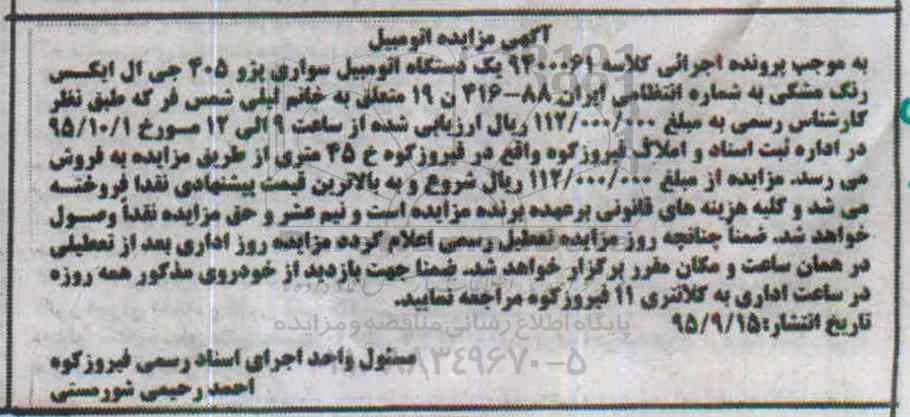 آگهی مزایده اتومبیل
به موجب پرونده اجرائی کلاسه ۹۴۰۰۰۶۱ یک دستگاه اتومبیل سواری پژو ۴۰۵ جی ال ایکس
رنگ مشکی به شماره انتظامی ایران ۸۸-۴۱۶ ن ۱۹ متعلق به خانم لیلی شمس فر که طبق نظر
کارشناس رسمی به مبلغ ۱۱۲/۰۰۰/۰۰۰ ریال ارزیابی شده از ساعت ۹ الی ۱۲ مورخ ۹۵/۱۰/۱
در اداره ثبت اسناد و املاک فیروزکوه واقع در فیروزکوه خ ۴۵ متری از طریق مزایده به فروش
می رسد. مزایده از مبلغ ۱۱۲/۰۰۰/۰۰۰ ریال شروع و به بالاترین قیمت پیشنهادی نقدا فروخته
می شد و کلیه هزینه های قانونی برعهده برنده مزایده است و نیم عشر و حق مزایده نقداً وصول
خواهد شد. ضمناً چنانچه روز مزایده تعطیل رسمی اعلام گردد مزایده روز اداری بعد از تعطیلی
در همان ساعت و مکان مقرر برگزار خواهد شد. ضمنا جهت بازدید از خودروی مذکور همه روزه
در ساعت اداری به کلانتری ۱۱ فیروزکوه مراجعه نمایید.
تاریخ انتشار: ۹۵/۹/۱۵
پایگاه اطلاع رسانی مناقصه و مزایده
مسئول واحد اجرای اسناد رسمی فیروزکوه
۸۸۳۴۹۶۷۰-۵
احمد رحیمی شورمستی